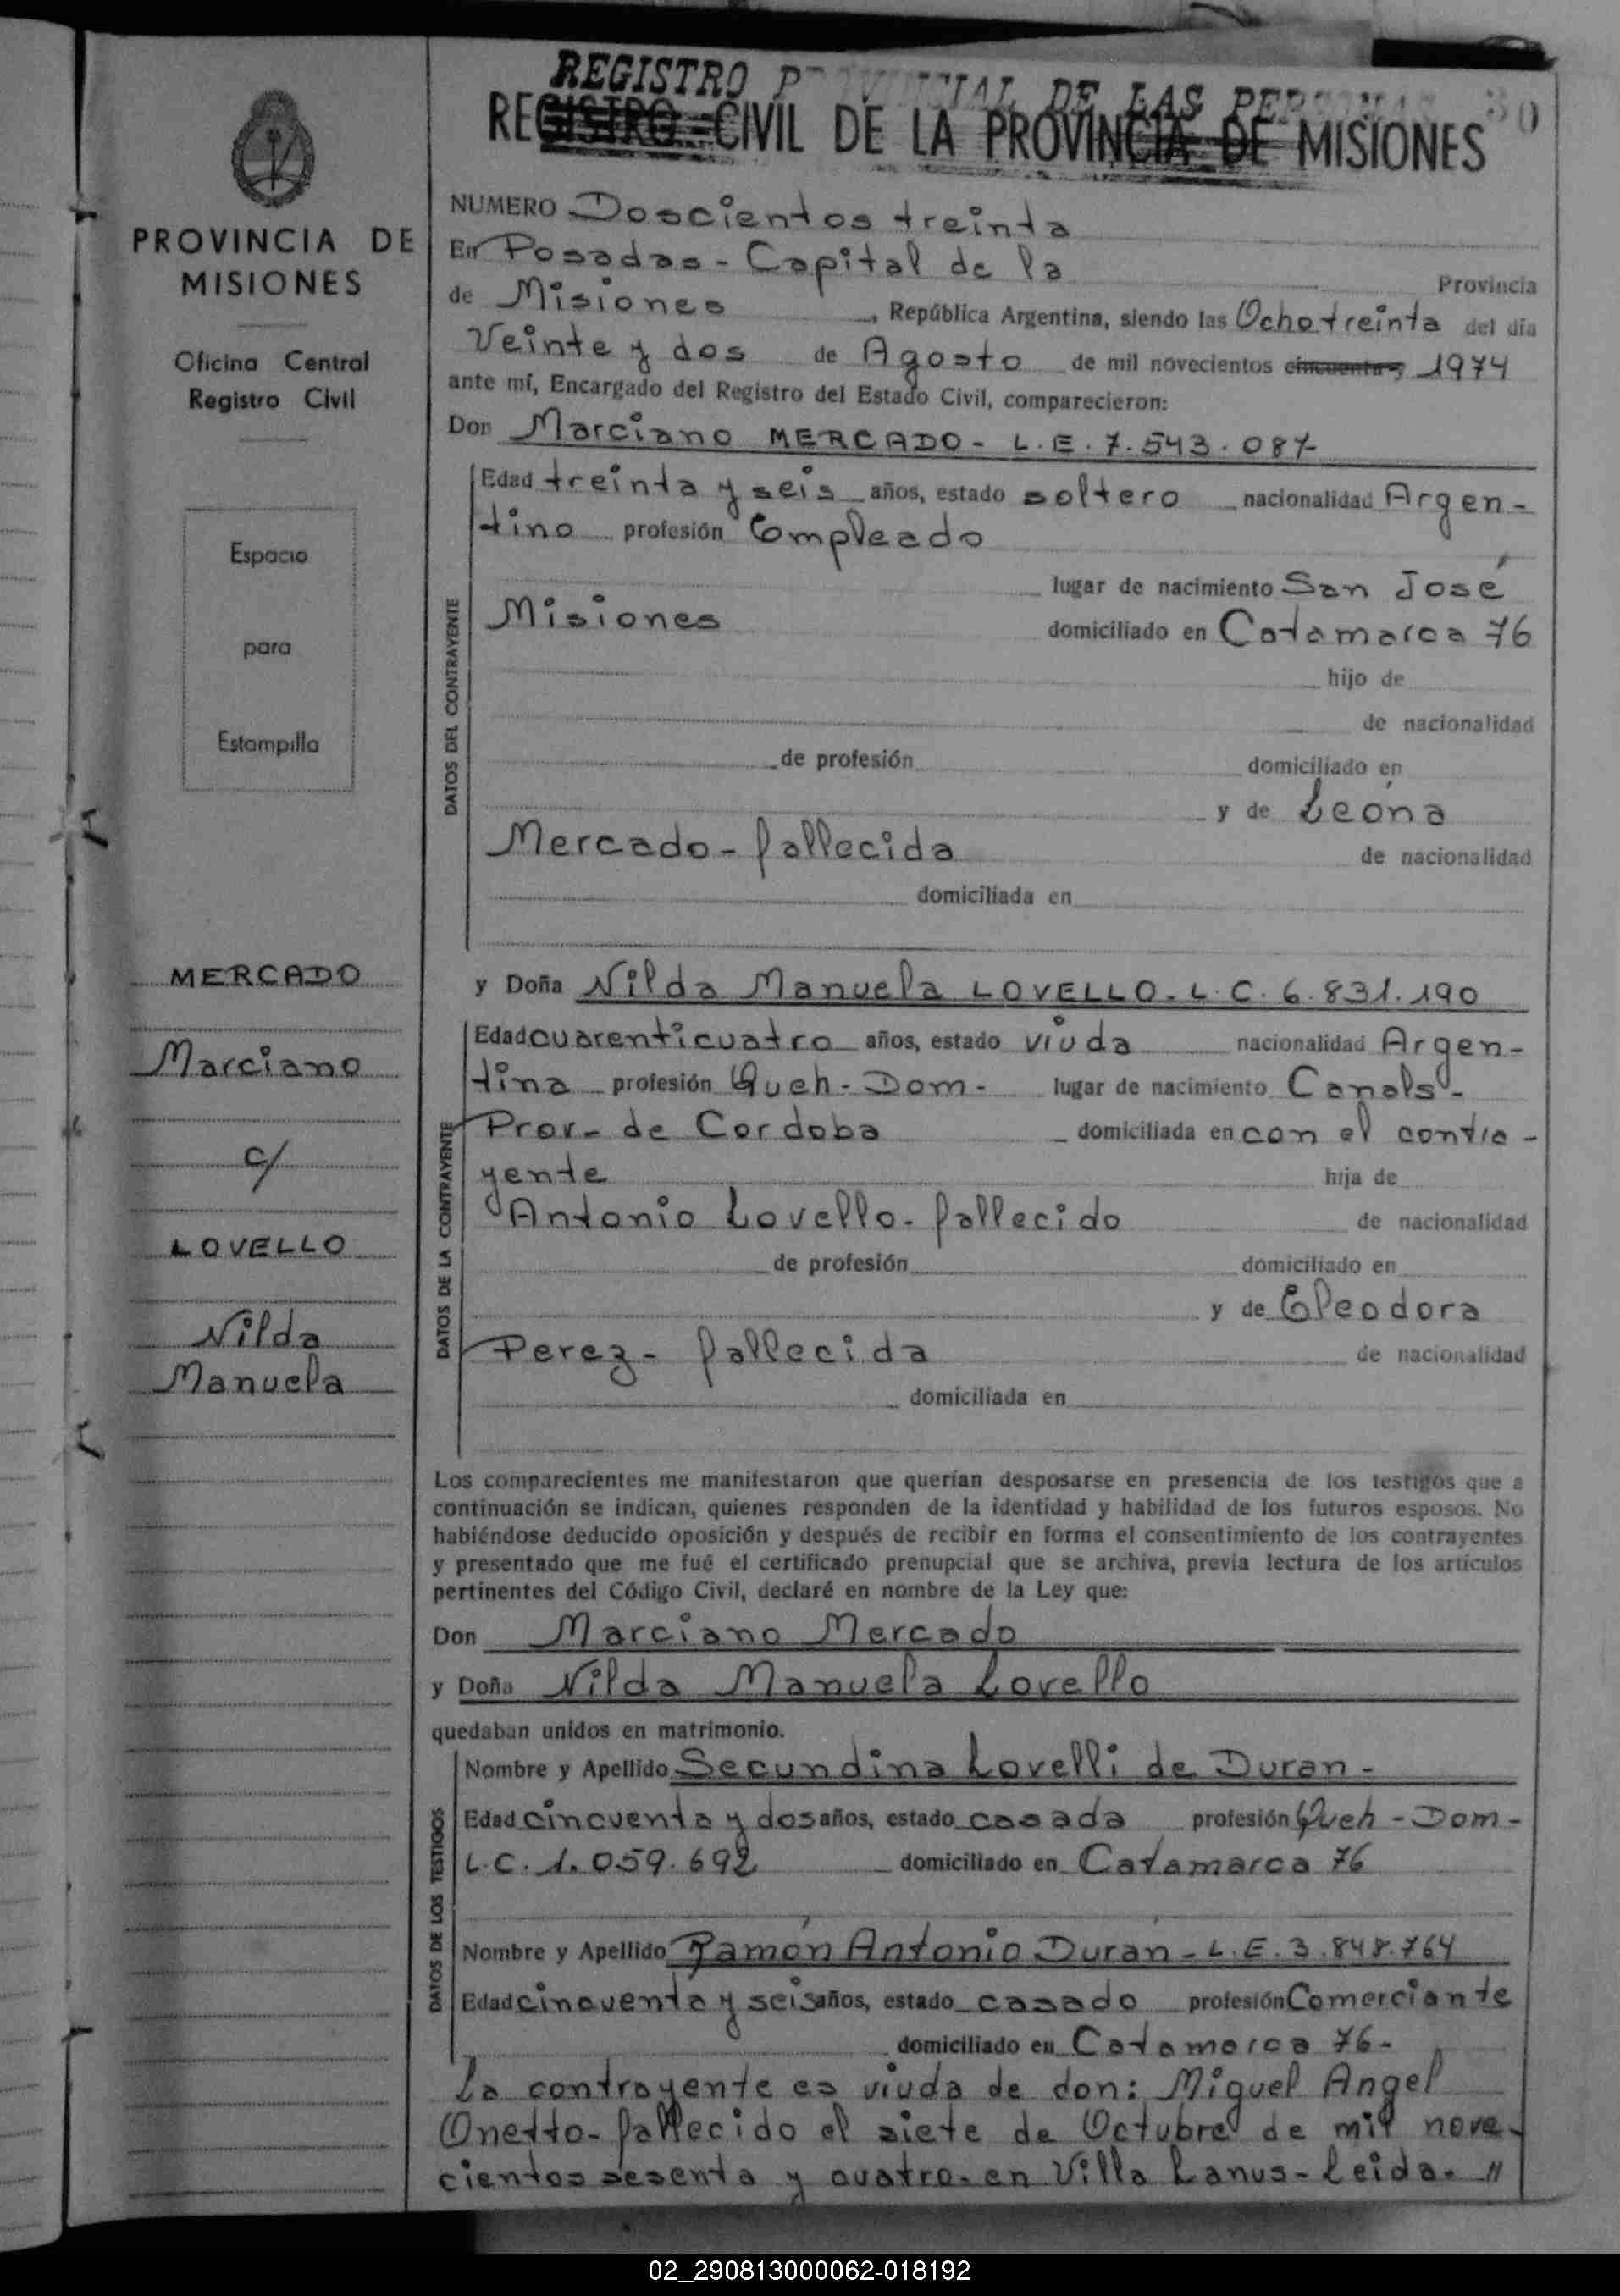 REGISTRO PROVINCIAL DE LAS PERSONAS 30
REGISTRO CIVIL DE LA PROVINCIA DE MISIONES
PROVINCIA DE
MISIONES
Oficina Central
Registro Civil
Espacio
para
Estampilla
MERCADO
Marciano
c/
LOVELLO
Nilda
Manuela
NUMERO Doscientos treinta
En Posadas - Capital de la Provincia
de Misiones, República Argentina, siendo las Ocho treinta del día
Veinte y dos de Agosto de mil novecientos cincuenta y 1974
ante mí, Encargado del Registro del Estado Civil, comparecieron:
Don Marciano MERCADO - L.E. 7.543.087
DATOS DEL CONTRAYENTE
Edad treinta y seis años, estado soltero nacionalidad Argen-
tino profesión Empleado
lugar de nacimiento San José
Misiones domiciliado en Catamarca 76
hijo de
de nacionalidad
de profesión domiciliado en
y de Leóna
Mercado - fallecida de nacionalidad
domiciliada en
y Doña Nilda Manuela LOVELLO. L.C. 6.831.190
DATOS DE LA CONTRAYENTE
Edad cuarenticuatro años, estado viuda nacionalidad Argen-
tina profesión Queh - Dom - lugar de nacimiento Canals -
Prov- de Cordoba domiciliada en con el contra-
yente hija de
Antonio Lovello - fallecido de nacionalidad
de profesión domiciliado en
y de Eleodora
Perez - fallecida de nacionalidad
domiciliada en
Los comparecientes me manifestaron que querían desposarse en presencia de los testigos que a
continuación se indican, quienes responden de la identidad y habilidad de los futuros esposos. No
habiéndose deducido oposición y después de recibir en forma el consentimiento de los contrayentes
y presentado que me fué el certificado prenupcial que se archiva, previa lectura de los artículos
pertinentes del Código Civil, declaré en nombre de la Ley que:
Don Marciano Mercado
y Doña Nilda Manuela Lovello
quedaban unidos en matrimonio.
DATOS DE LOS TESTIGOS
Nombre y Apellido Secundina Lovelli de Duran -
Edad cincuenta y dos años, estado casada profesión Queh - Dom -
L.C. 1.059.692 domiciliado en Catamarca 76
Nombre y Apellido Ramón Antonio Durán - L.E. 3.848.764
Edad cincuenta y seis años, estado casado profesión Comerciante
domiciliado en Catamarca 76 -
La contrayente es viuda de don: Miguel Angel
Onetto - fallecido el siete de Octubre de mil nove-
cientos sesenta y cuatro - en Villa Lanus - Leida. //
02_290813000062-018192